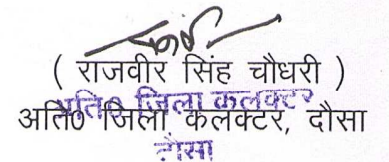 ( राजवीर सिंह चौधरी )
अति० जिला कलक्टर
अति० जिला कलक्टर, दौसा
दौसा